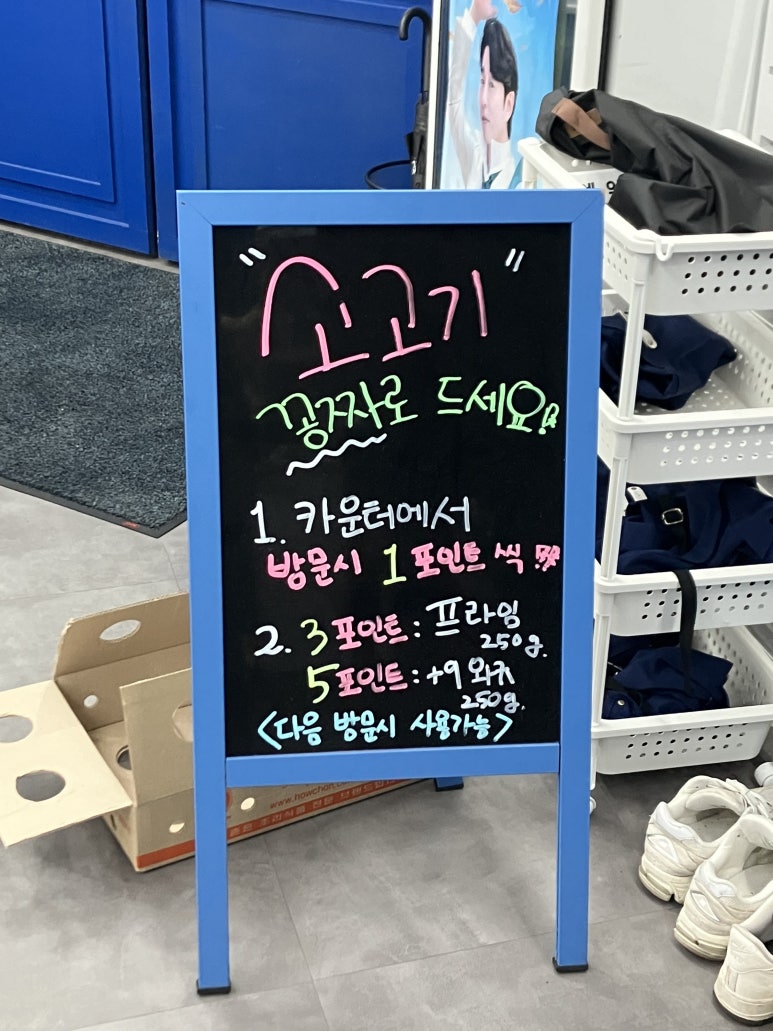 "소고기"
꽁짜로 드세요!
1. 카운터에서
방문시 1 포인트 씩!!
2. 3포인트 : 프라임
250g.
5포인트 : +9 와규
250g.
<다음 방문시 사용가능>
www.howchon.co